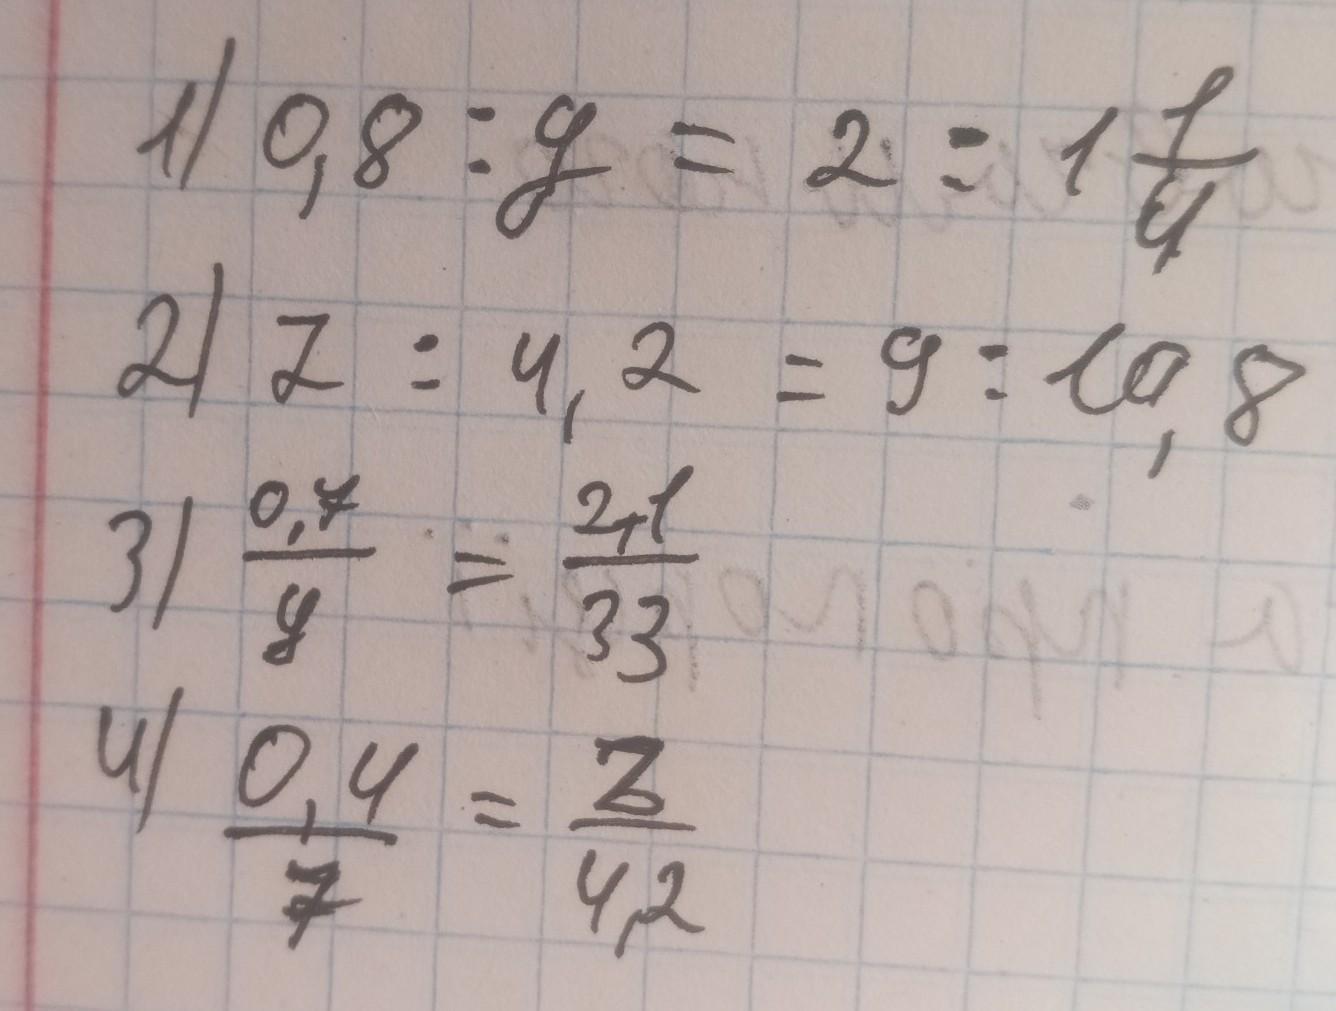 1) 0,8 : y = 2 : 1 1/4
2) z : 4,2 = 9 : 10,8
3) 0,7/y = 2,1/33
4) 0,4/7 = z/4,2